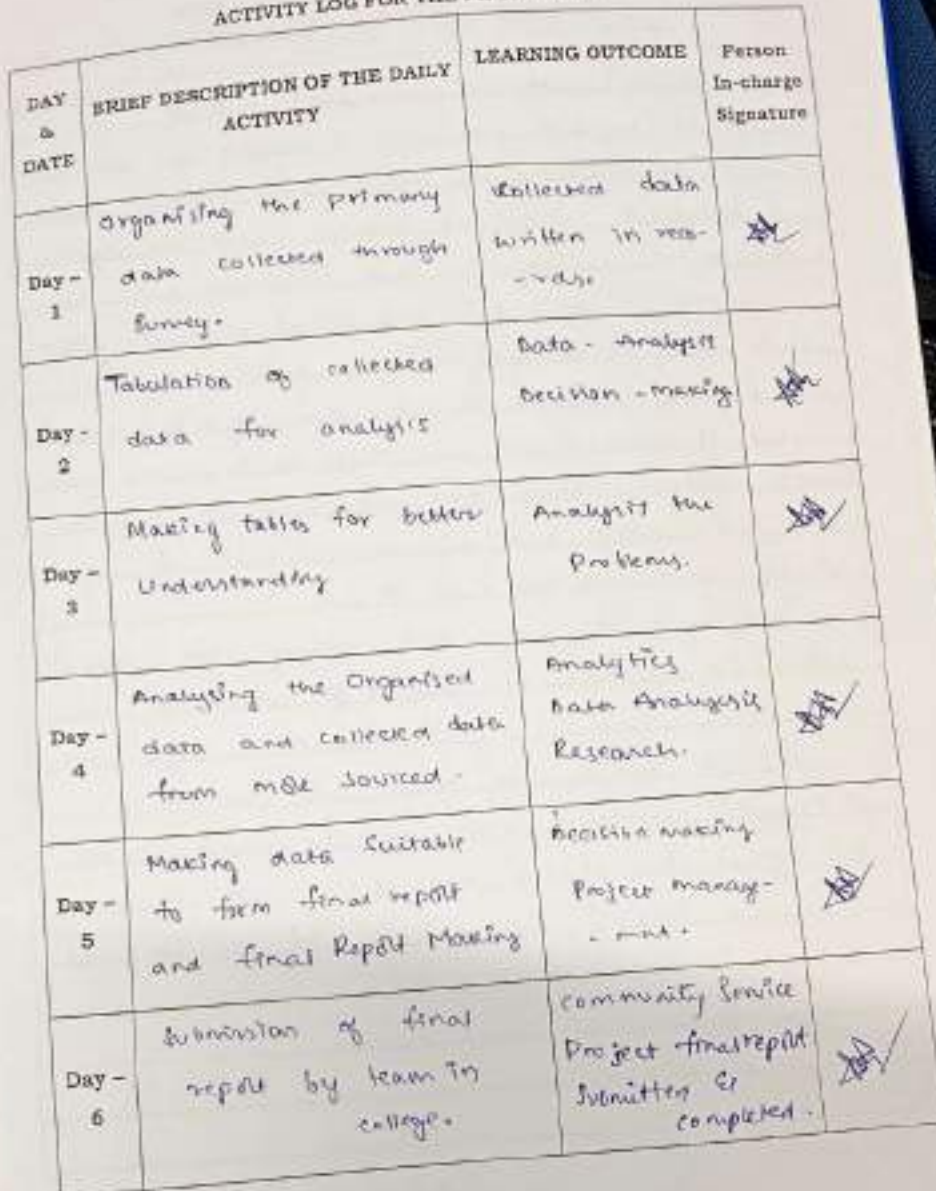 ACTIVITY LOG FOR THE
DAY
&
DATE
BRIEF DESCRIPTION OF THE DAILY
ACTIVITY
LEARNING OUTCOME
Person
In-charge
Signature
Day -
1
Organising the primary
data collected through
Survey.
Collected data
written in reco-
-rds.
Day -
2
Tabulation of collected
data for analysis
Data - Analysis
Decision - making
Day -
3
Making tables for better
Understanding
Analysis the
Problems.
Day -
4
Analysing the Organised
data and collected data
from sourced.
Analytics
Data Analysis
Research.
Day -
5
Making data Suitable
to form final report
and final Report Making
Decision making
Project manage-
- mnt.
Day -
6
Submission of final
report by team in
college.
Community Service
Project final report
Submitten &
completed.